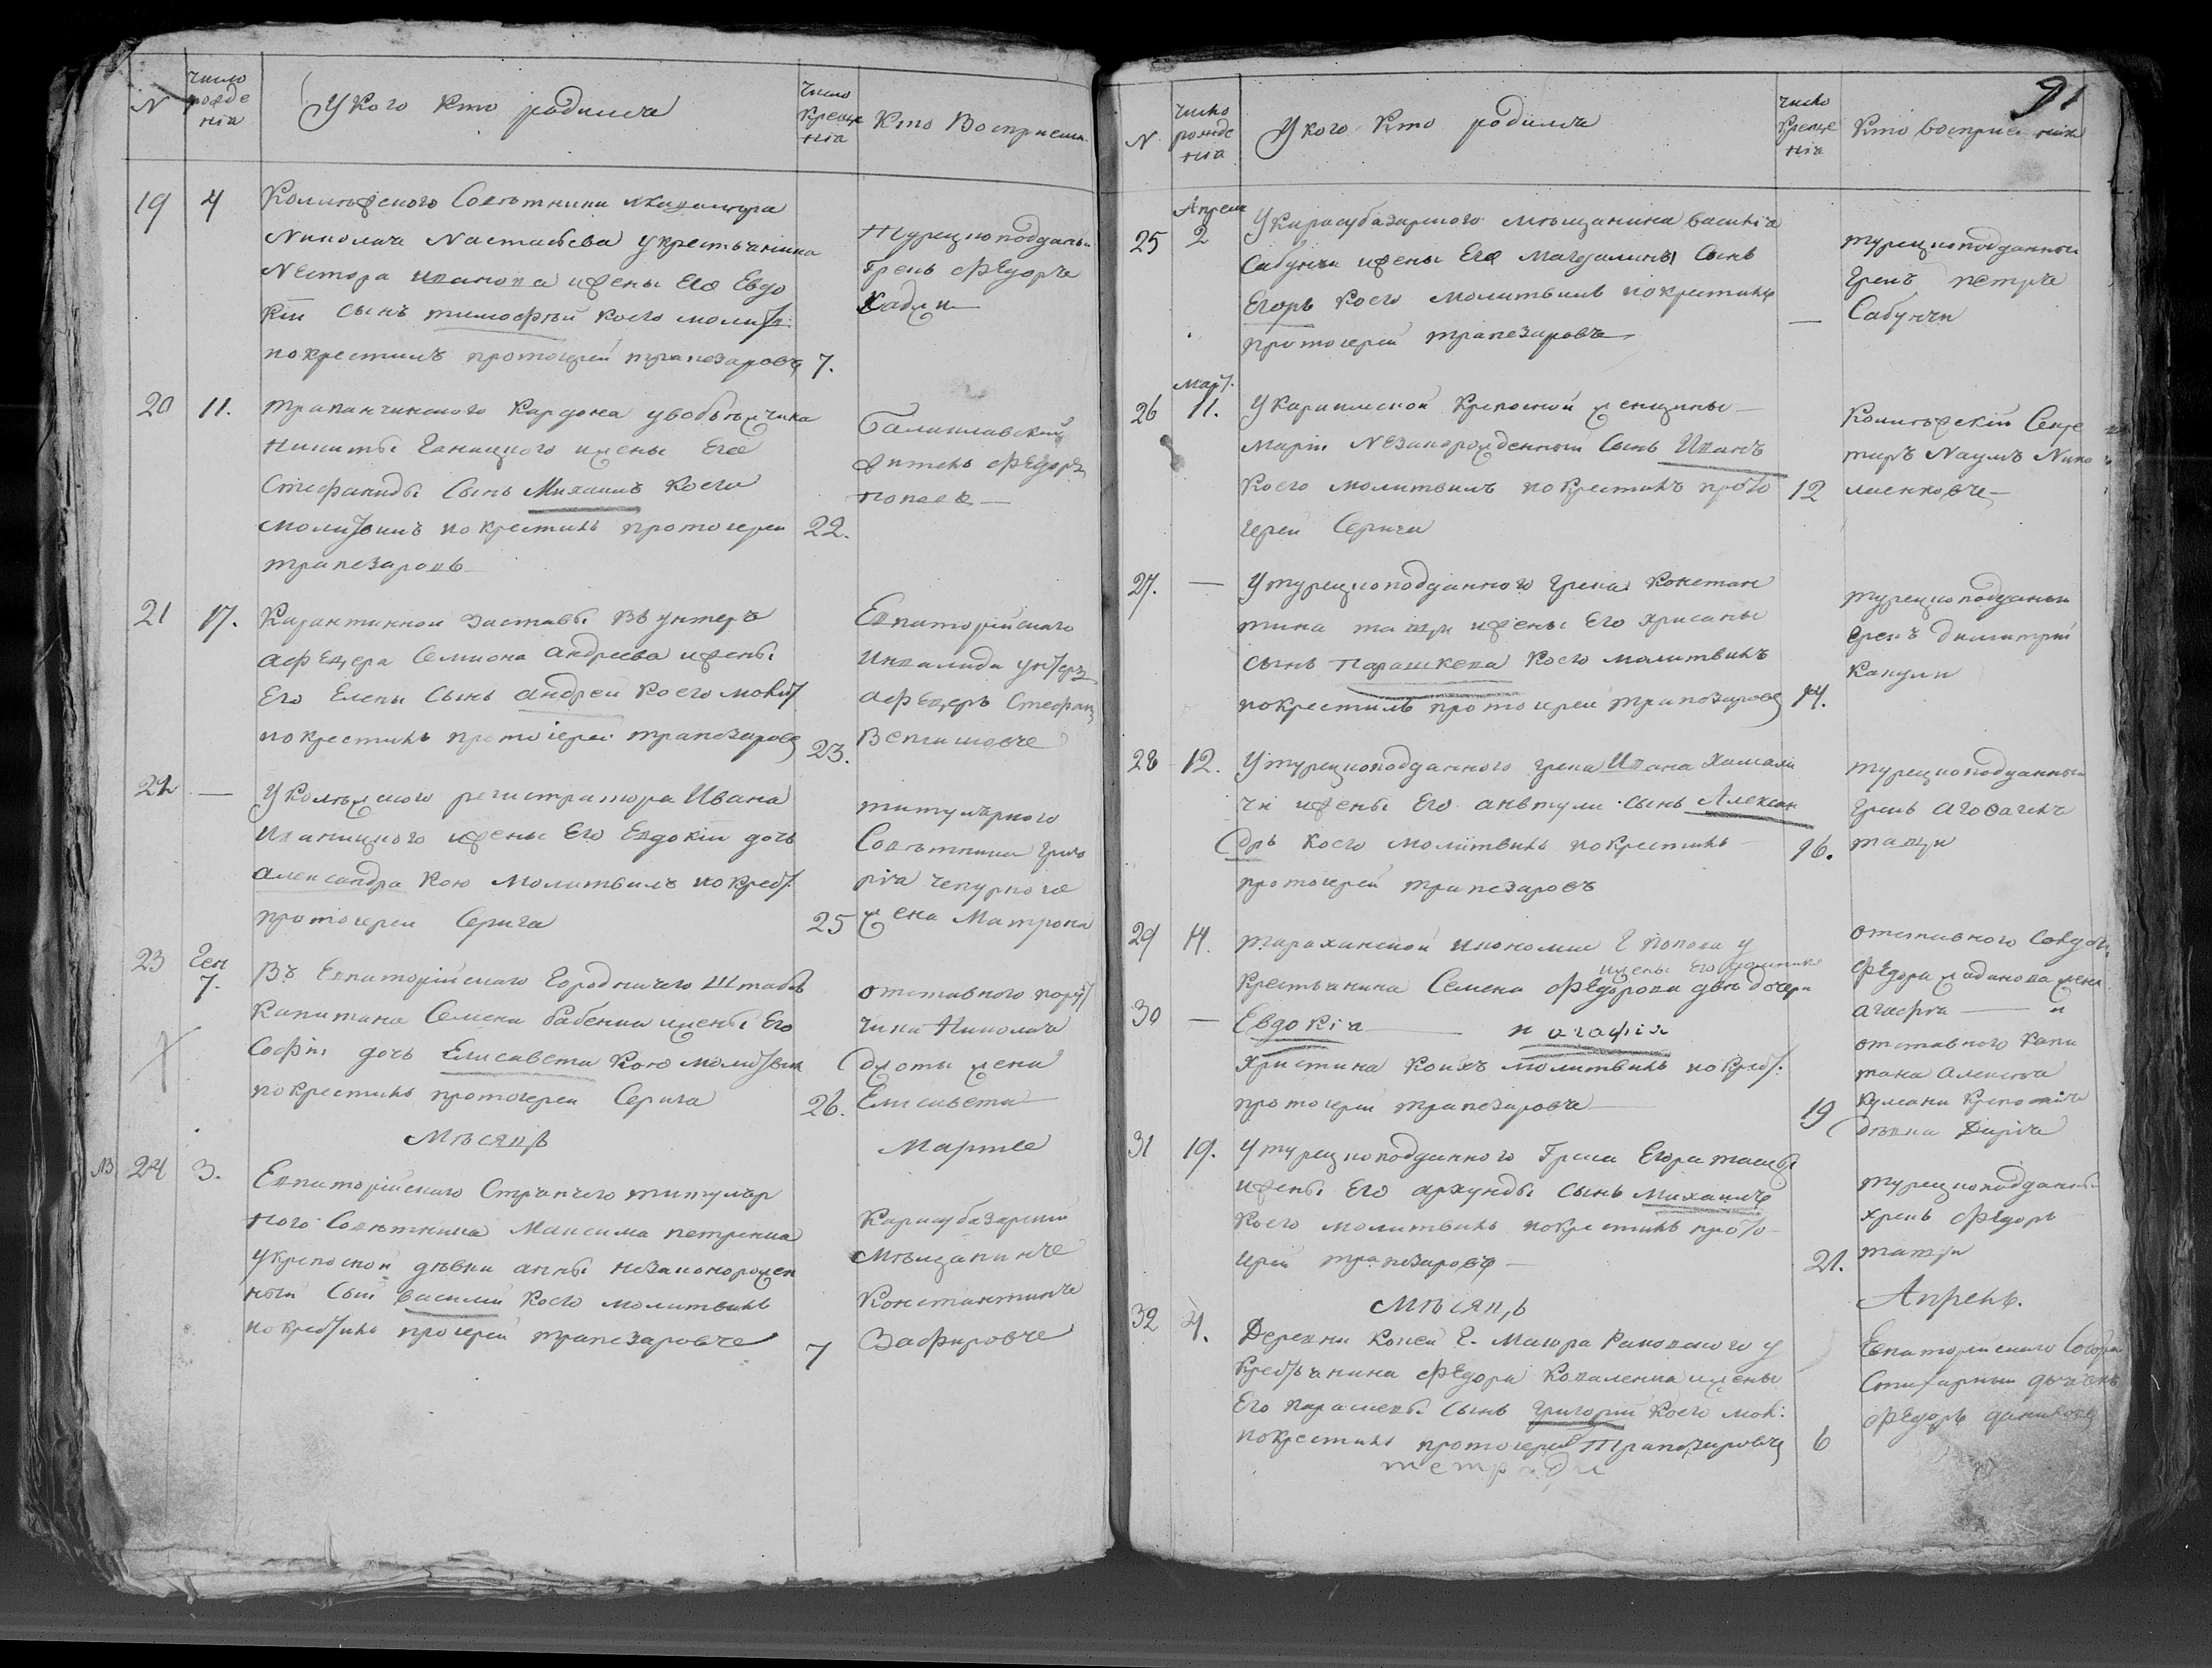 N
число рожде нiя
У Кого Кто родился
число Креще нiя
Кто Восприем.
19 4
Колѣжского Совѣтника
Николая Настабѣва у крестьянина
Нестора Иванова и жены Его Евдо
кiи сынъ тимофѣй коего молит.
покрестилъ протоiерей трапезаровъ 7.
Турецкоподданы
Грекъ Федоръ
Хадли
20 11.
Трапанчинского Кардона у вобьѣщика
Никиты Ганицкого и жены Его
Стефаниды Сынъ Михаилъ коего
молитвилъ покрестилъ протоiерей 22.
трапезаровъ
Балаклавскiй
житель Федоръ
поповъ
21 17.
Карантинной заставы въ унтеръ
афецера Семиона Андреева и жены
Его Елены Сынъ андрей коего молит
покрестилъ протоiерей трапезаровъ 23.
Евпаторiйского
Инвалида унтеръ
афецеръ Стефанъ
22 —
У Колѣжского регистратора Ивана
Иваницкого и жены Его Евдокiи дочь
александра кою молитвилъ покрест.
протоiереи Серига 25
титулярного
Совѣтника Григо
рiя чепурного
жена Матрона
23 Ген 7.
Въ Евпаторiйского Городничего Штабсъ
Капитана Семена бабенка и жены Его
Софiи дочь Елисавета Кою молитвилъ
покрестилъ протоiереи Серига 26.
отставного пору
чика Николая
жена
Елисавета
Мѣсяцъ Мартъ
NB 24 3.
Евпаторiйского Стряпчего титуляр
ного Совѣтника Максима петренка
у крепосной дѣвки анны незаконорожден
ный Сынъ василий коего молитвилъ
покрестилъ протерей трапезаровъ 7
Карасубазарский
Мѣщанинъ
Константинъ
Зафировъ
91
N
число рожде нiя
У кого Кто родился
число Креще нiя
Кто восприемник
25 Апреля 2
У Карасубазарского мѣщанина василiя
Сабунжи и жены Его Магдалины Сынъ
Егоръ коего молитвилъ покрестилъ
протоiерей трапезаровъ —
турецкоподданный
Грекъ петръ
Сабунчи
26 Март. 11.
У Карашской Крепосной женщины
Марiи Незаконрожденный Сынъ Иванъ
Коего молитвилъ покрестилъ прото 12
iерей Серига
Колѣжскiй Секре
таръ Наумъ Нико
лаенковъ
27. —
У турецкоподданного Грека Констан
тина татри и жены Его хрисаны
сынъ парашкева коего молитвилъ
покрестилъ протоiереи трапезаровъ 14.
турецкоподданый
Грекъ димитрий
Капули
28 12.
У турецкоподданного грека Ивана
чи и жены Его сынъ Алексан
дръ коего молитвилъ покрестилъ 16.
протоiерей трапезаровъ
турецкоподданный
Грекъ
татри
29 14.
Тараханской Икономiи Г попова у
и жены Его
Крестьянина Семена Федорова двѣ дочери
30 —
Евдокiя — и агафiя
христина коихъ молитвилъ покрест.
протоiерей трапезаровъ 19
отставного Солдата
Федора жена
агафiя — и
отставного Капи
тана алексѣя
дѣвка Дарiя
31 19.
У турецкоподданного Грека Егора
и жены Его архунды Сынъ Михаилъ
коего молитвилъ покрестилъ прото
iрей трапезаровъ 21.
турецкоподданы
хрекъ Федоръ
татри
Мѣсяцъ Апрель.
32 4.
Деревни Г. Маiора у
Крестьянина Федора Коваленка и жены
Его парасковы Сынъ Григорий коего мол:
покрестилъ протоiереи Трапезаровъ 6
Евпаторiйского Собора
Стихарный дьячекъ
Федоръ
тетради